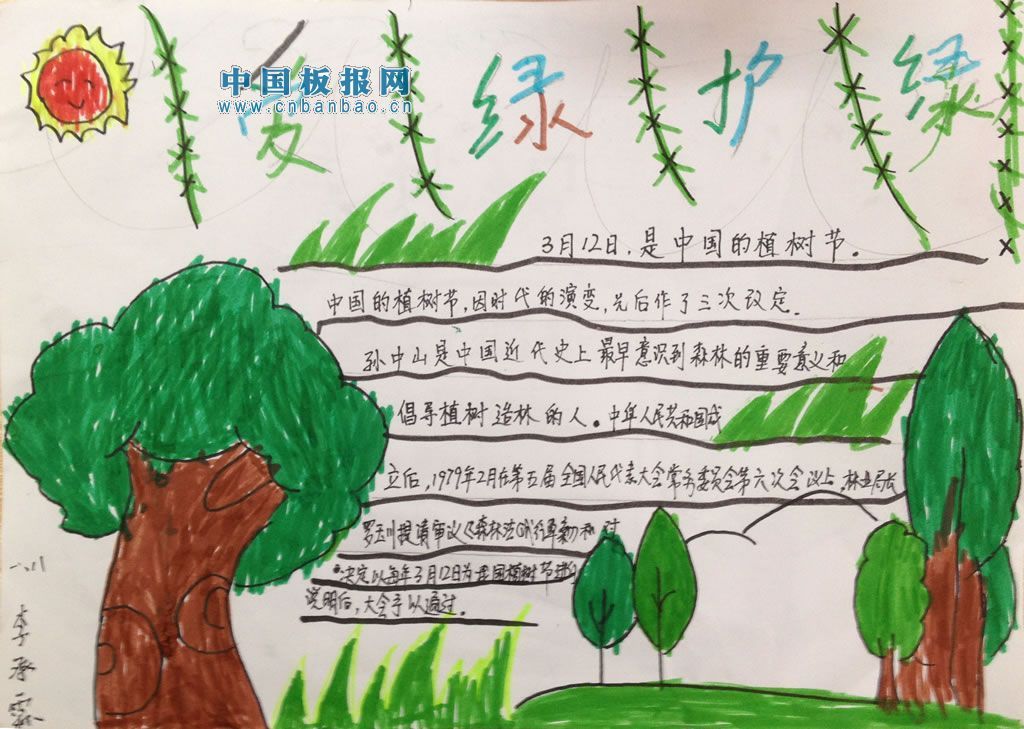 中国板报网
www.cnbanbao.cn
爱绿护绿
3月12日,是中国的植树节。
中国的植树节,因时代的演变,先后作了三次议定。
孙中山是中国近代史上最早意识到森林的重要意义和
倡导植树造林的人。中华人民共和国成
立后,1979年2月在第五届全国人民代表大会常务委员会第六次会议上,林业局长
罗玉川提请审议《森林法(试行草案)和对
决定以每年3月12日为我国植树节进行
说明后,大会予以通过。
八川
李承霖